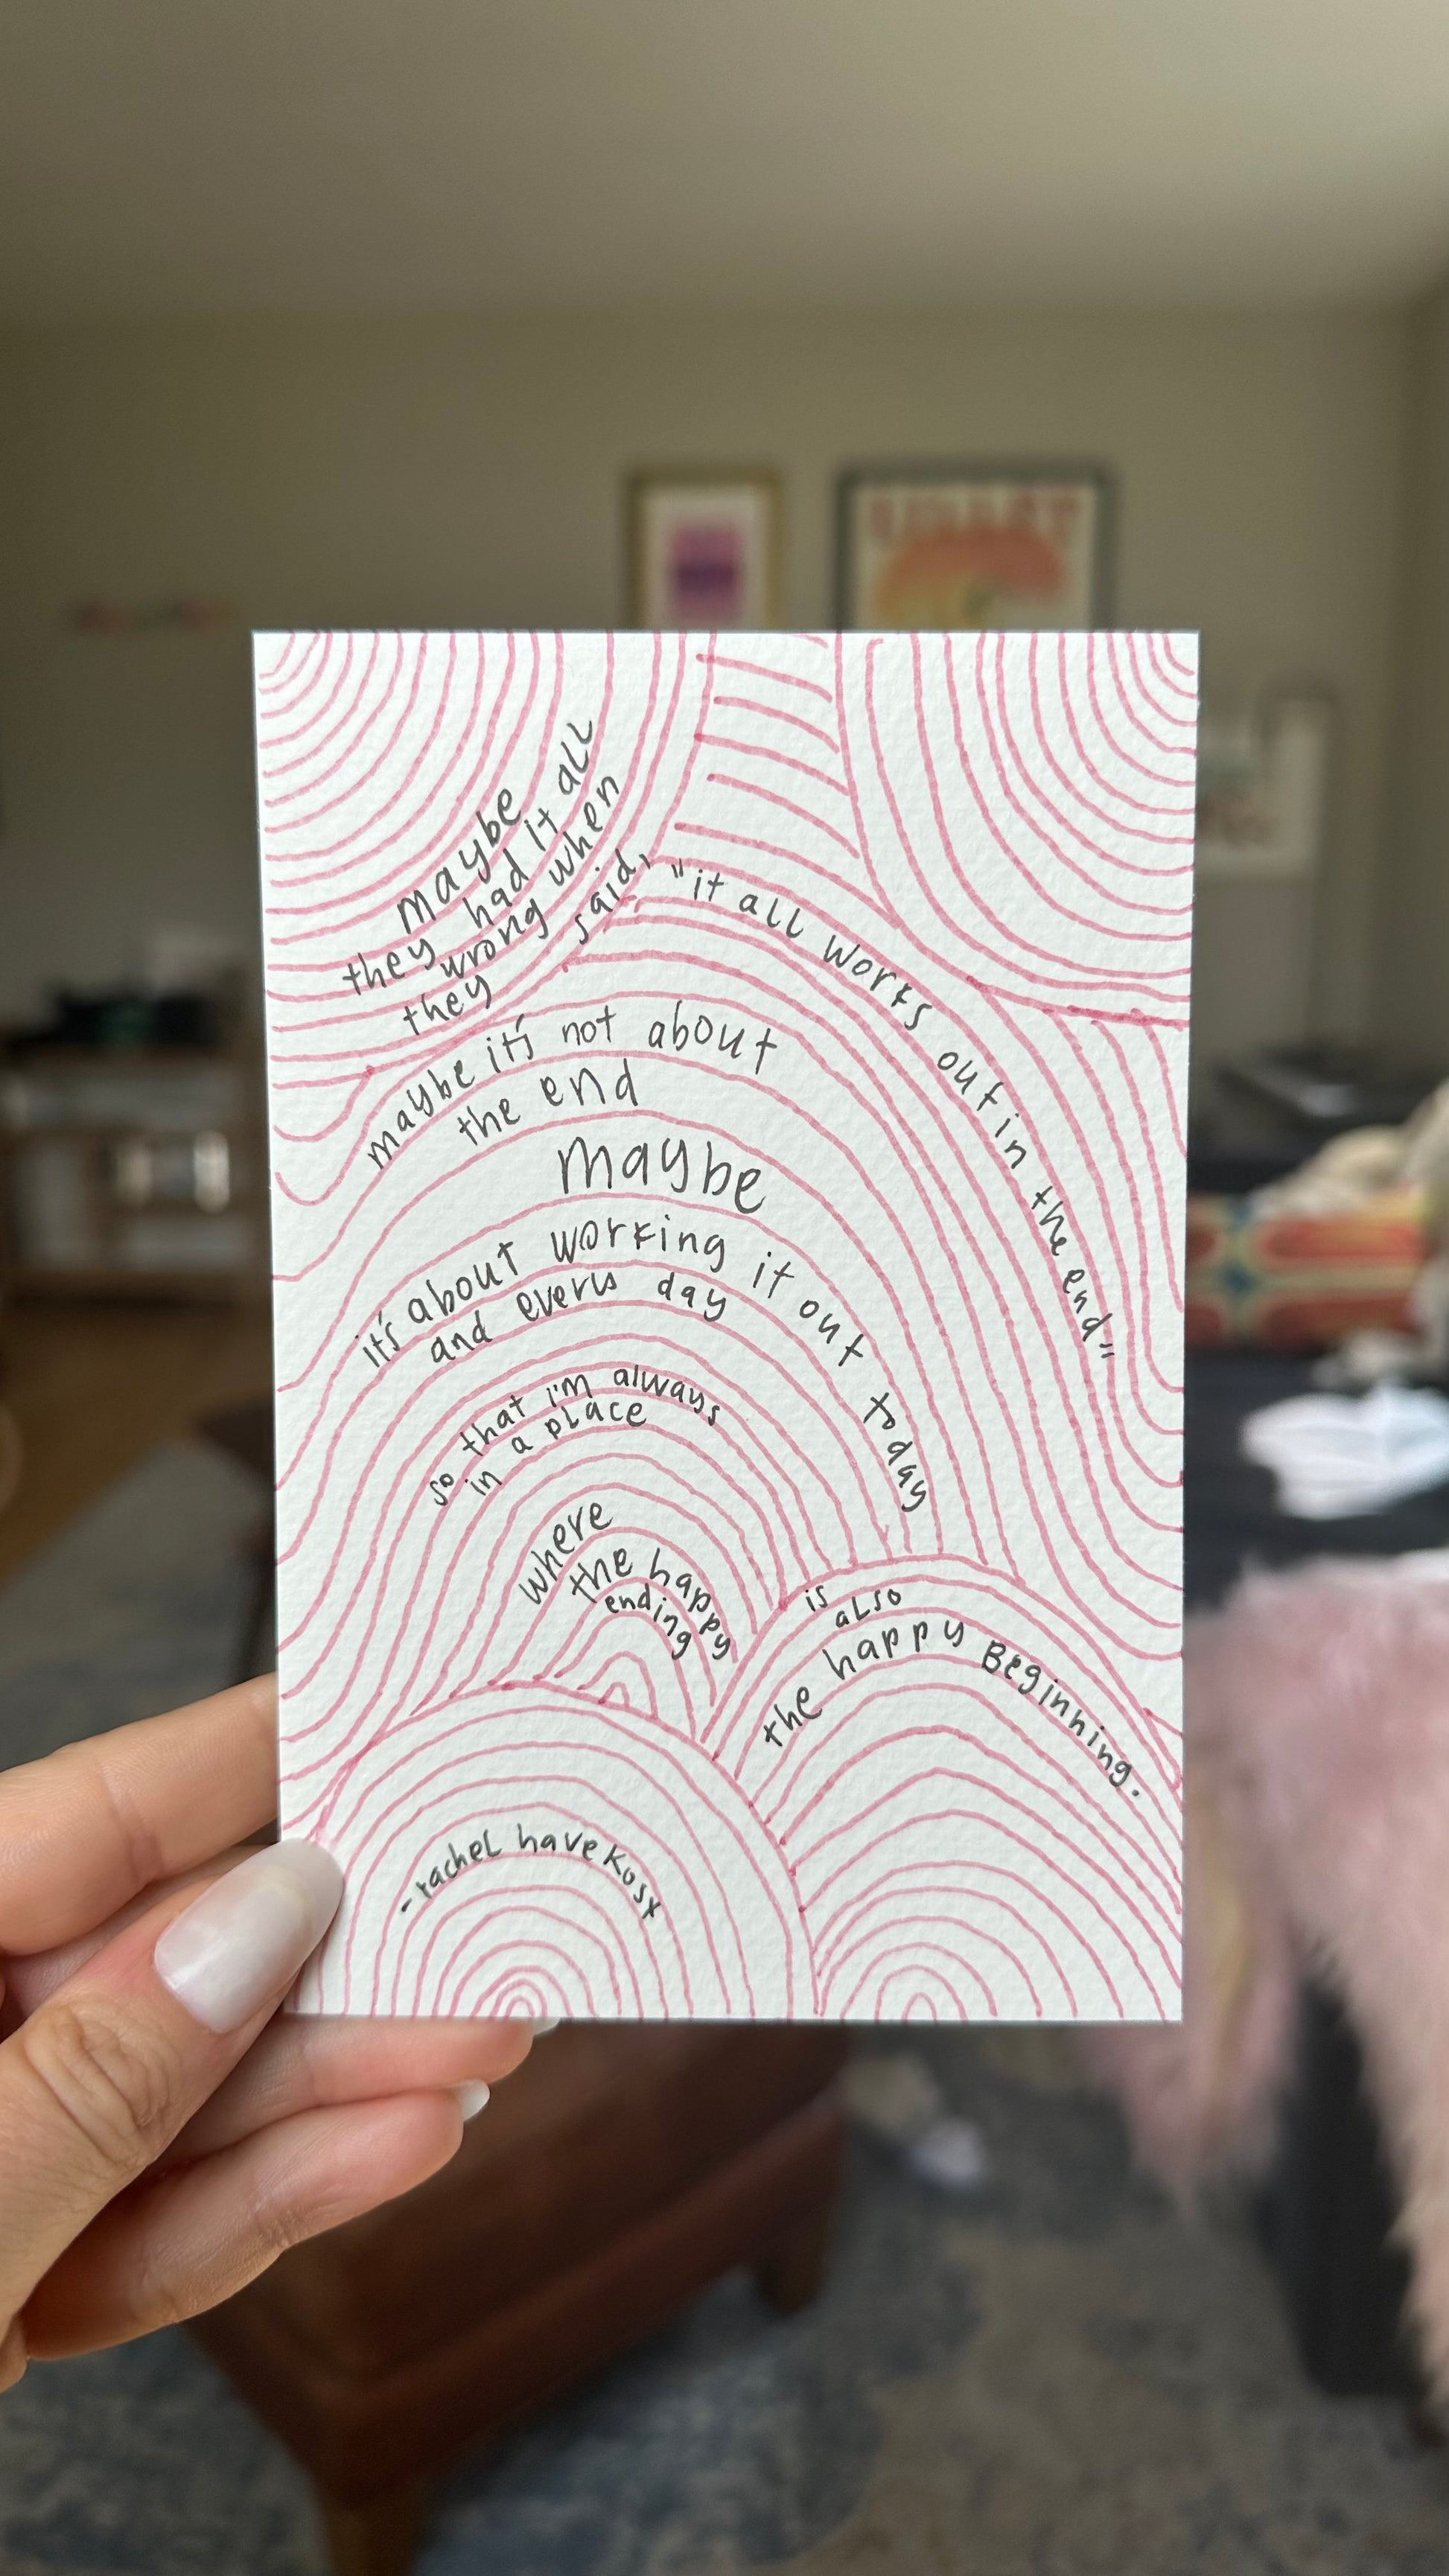 maybe
they had it all
wrong when
they said,
"it all works out in the end"
maybe it's not about
the end
maybe
it's about working it out today
and every day
so that i'm always
in a place
where
the happy
ending
is
also
the happy Beginning.
- rachel havekost